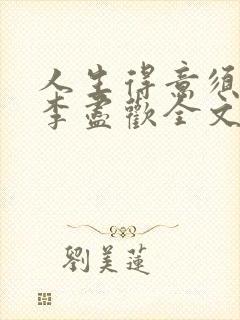 人生得意须
李盡歡全文
劉美蓮